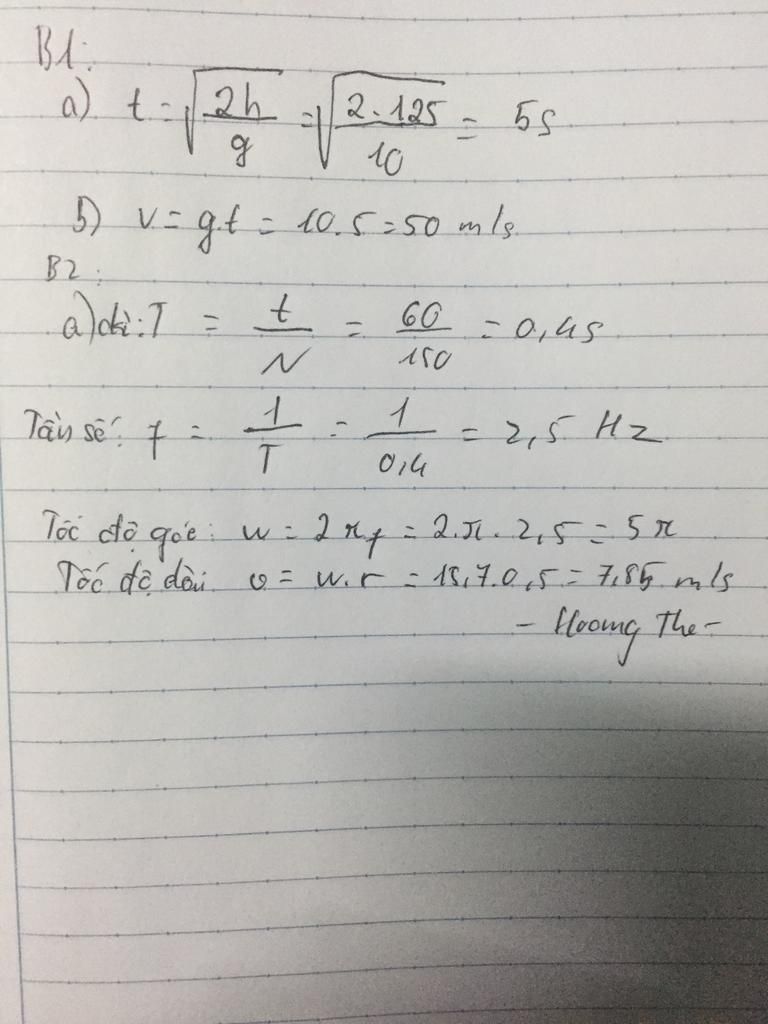 B1:
a) t = √(2h/g) = √(2.125/10) = 5s
b) v = g.t = 10.5 = 50 m/s
B2:
a) : T = t/N = 60/150 = 0,4s
Tần số: f = 1/T = 1/0,4 = 2,5 Hz
Tốc độ góc: w = 2πf = 2.π.2,5 = 5π
Tốc độ dài v = w.r = 15,7.0,5 = 7,85 m/s
- Hoomg The -